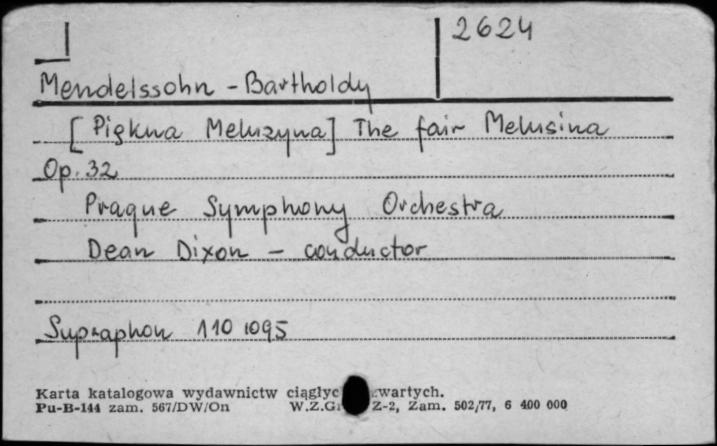 2624
Mendelssohn - Bartholdy
[Piękna Meluzyna] The fair Melusina
Op. 32
Prague Symphony Orchestra
Dean Dixon - conductor
Supraphon 110 1095
Karta katalogowa wydawnictw
Pu-B-144 zam. 567/DW/On W.Z.Gr Z-2, Zam. 502/77, 6 400 000